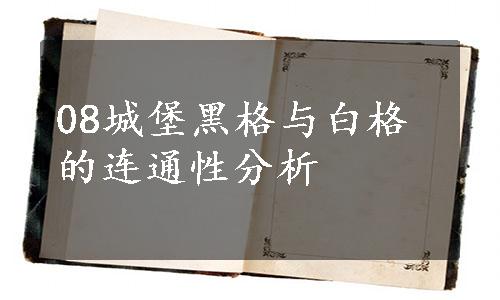 08城堡黑格与白格
的连通性分析